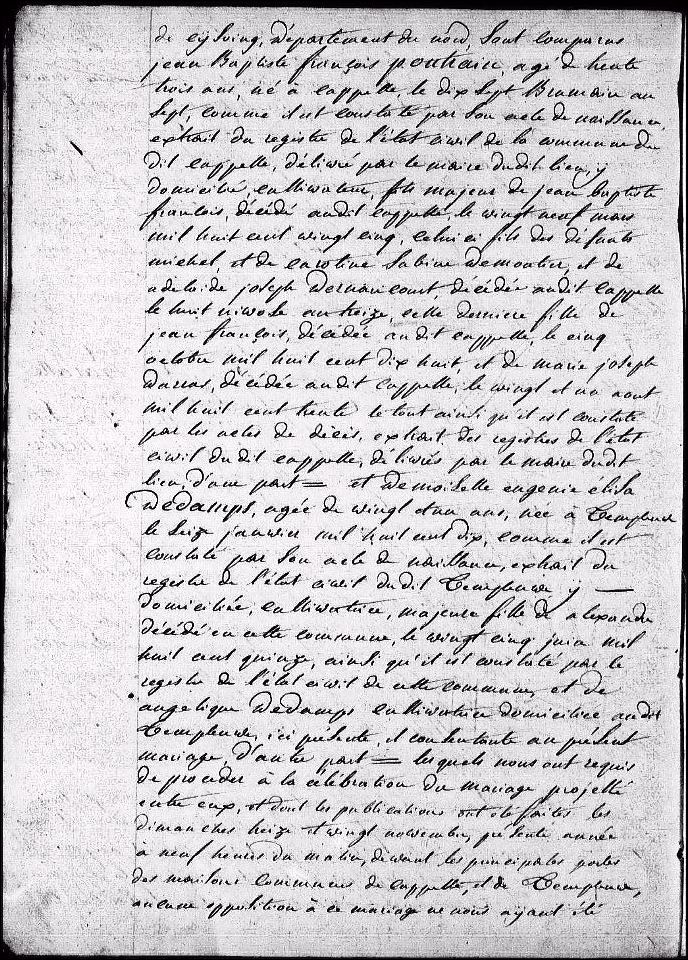 de cijsoing, département du nord, Sont comparus
jean Baptiste françois pontrain agé de trente
trois ans, né à Cappelle, le dix Sept Brumaire an
Sept, comme il est constaté par Son acte de naissance,
extrait du registre de l'état civil de la commune du
dit Cappelle, délivré par le maire du dit lieu, y
domicilié, cultivateur, fils majeur de jean baptiste
françois, décédé au dit Cappelle, le vingt neuf mars
mil huit cent vingt cinq, celui ci fils des défunts
michel, et de caroline Sabine Demontier, et de
adelaide joseph Dernancourt, décédée audit Cappelle
le huit nivose an treize, cette derniere fille de
jean françois, décédée audit Cappelle, le cinq
octobre mil huit cent dix huit, et de marie joseph
Darras, décédée au dit Cappelle, le vingt et un aout
mil huit cent trente le tout ainsi qu'il est constaté
par les actes de décès, extrait des registres de l'état
civil du dit Cappelle, délivrés par le maire du dit
lieu, d'une part = et demoiselle eugenie élisa
Dedamps, agée de vingt et un ans, née à Templeuve
le Seize janvier mil huit cent dix, comme il est
constaté par Son acte de naissance, extrait du
registre de l'état civil du dit Templeuve y —
domiciliée, cultivatrice, majeure fille de alexandre
décédé en cette commune, le vingt cinq juin mil
huit cent quinze, ainsi qu'il est constaté par le
registre de l'état civil de cette commune, et de
angelique Dedamps cultivatrice domiciliée au dit
Templeuve, ici présente, et consentante au présent
mariage, d'autre part = lesquels nous ont requis
de proceder à la célébration du mariage projetté
entre eux, et dont les publications ont été faites les
dimanches treize et vingt novembre, présente année
à neuf heures du matin, devant les principales portes
des maisons communes de Cappelle, et de Templeuve,
aucune opposition à ce mariage ne nous ayant été